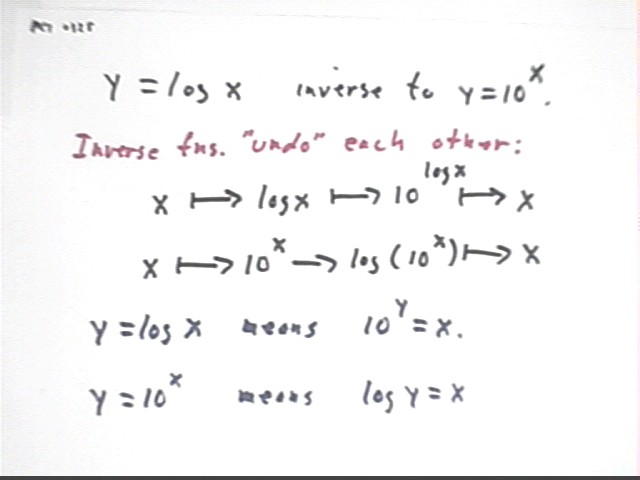 y = log x inverse to y = 10^x.
Inverse fns. "undo" each other:
x ↦ log x ↦ 10^{log x} ↦ x
x ↦ 10^x → log (10^x) ↦ x
y = log x means 10^y = x.
y = 10^x means log y = x